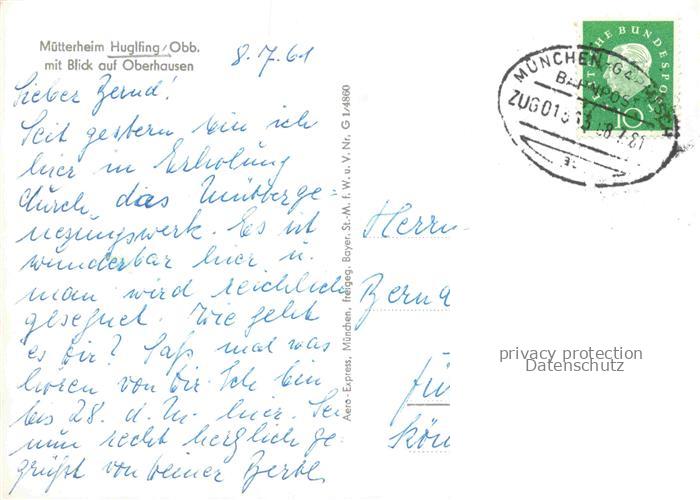 Mütterheim Huglfing/Obb.
mit Blick auf Oberhausen
8.7.61
Lieber Bernd!
Seit gestern bin ich
hier in Erholung
durch das Müttergenesungswerk. Es ist
wunderbar hier u.
man wird reichlich
gesegnet. Wie geht
es Dir? Laß mal was
hören von Dir. Ich bin
bis 28. d. M. hier. Sei
nun recht herzlich gegrüßt von Deiner
Aero-Express, München, Freigeg. Bayer. St.-M. f. W. u. V. Nr. G 1/4860
Herrn
Bernd
MÜNCHEN-GARMISCH
BAHNPOST
ZUG
DEUTSCHE BUNDESPOST
10
privacy protection
Datenschutz